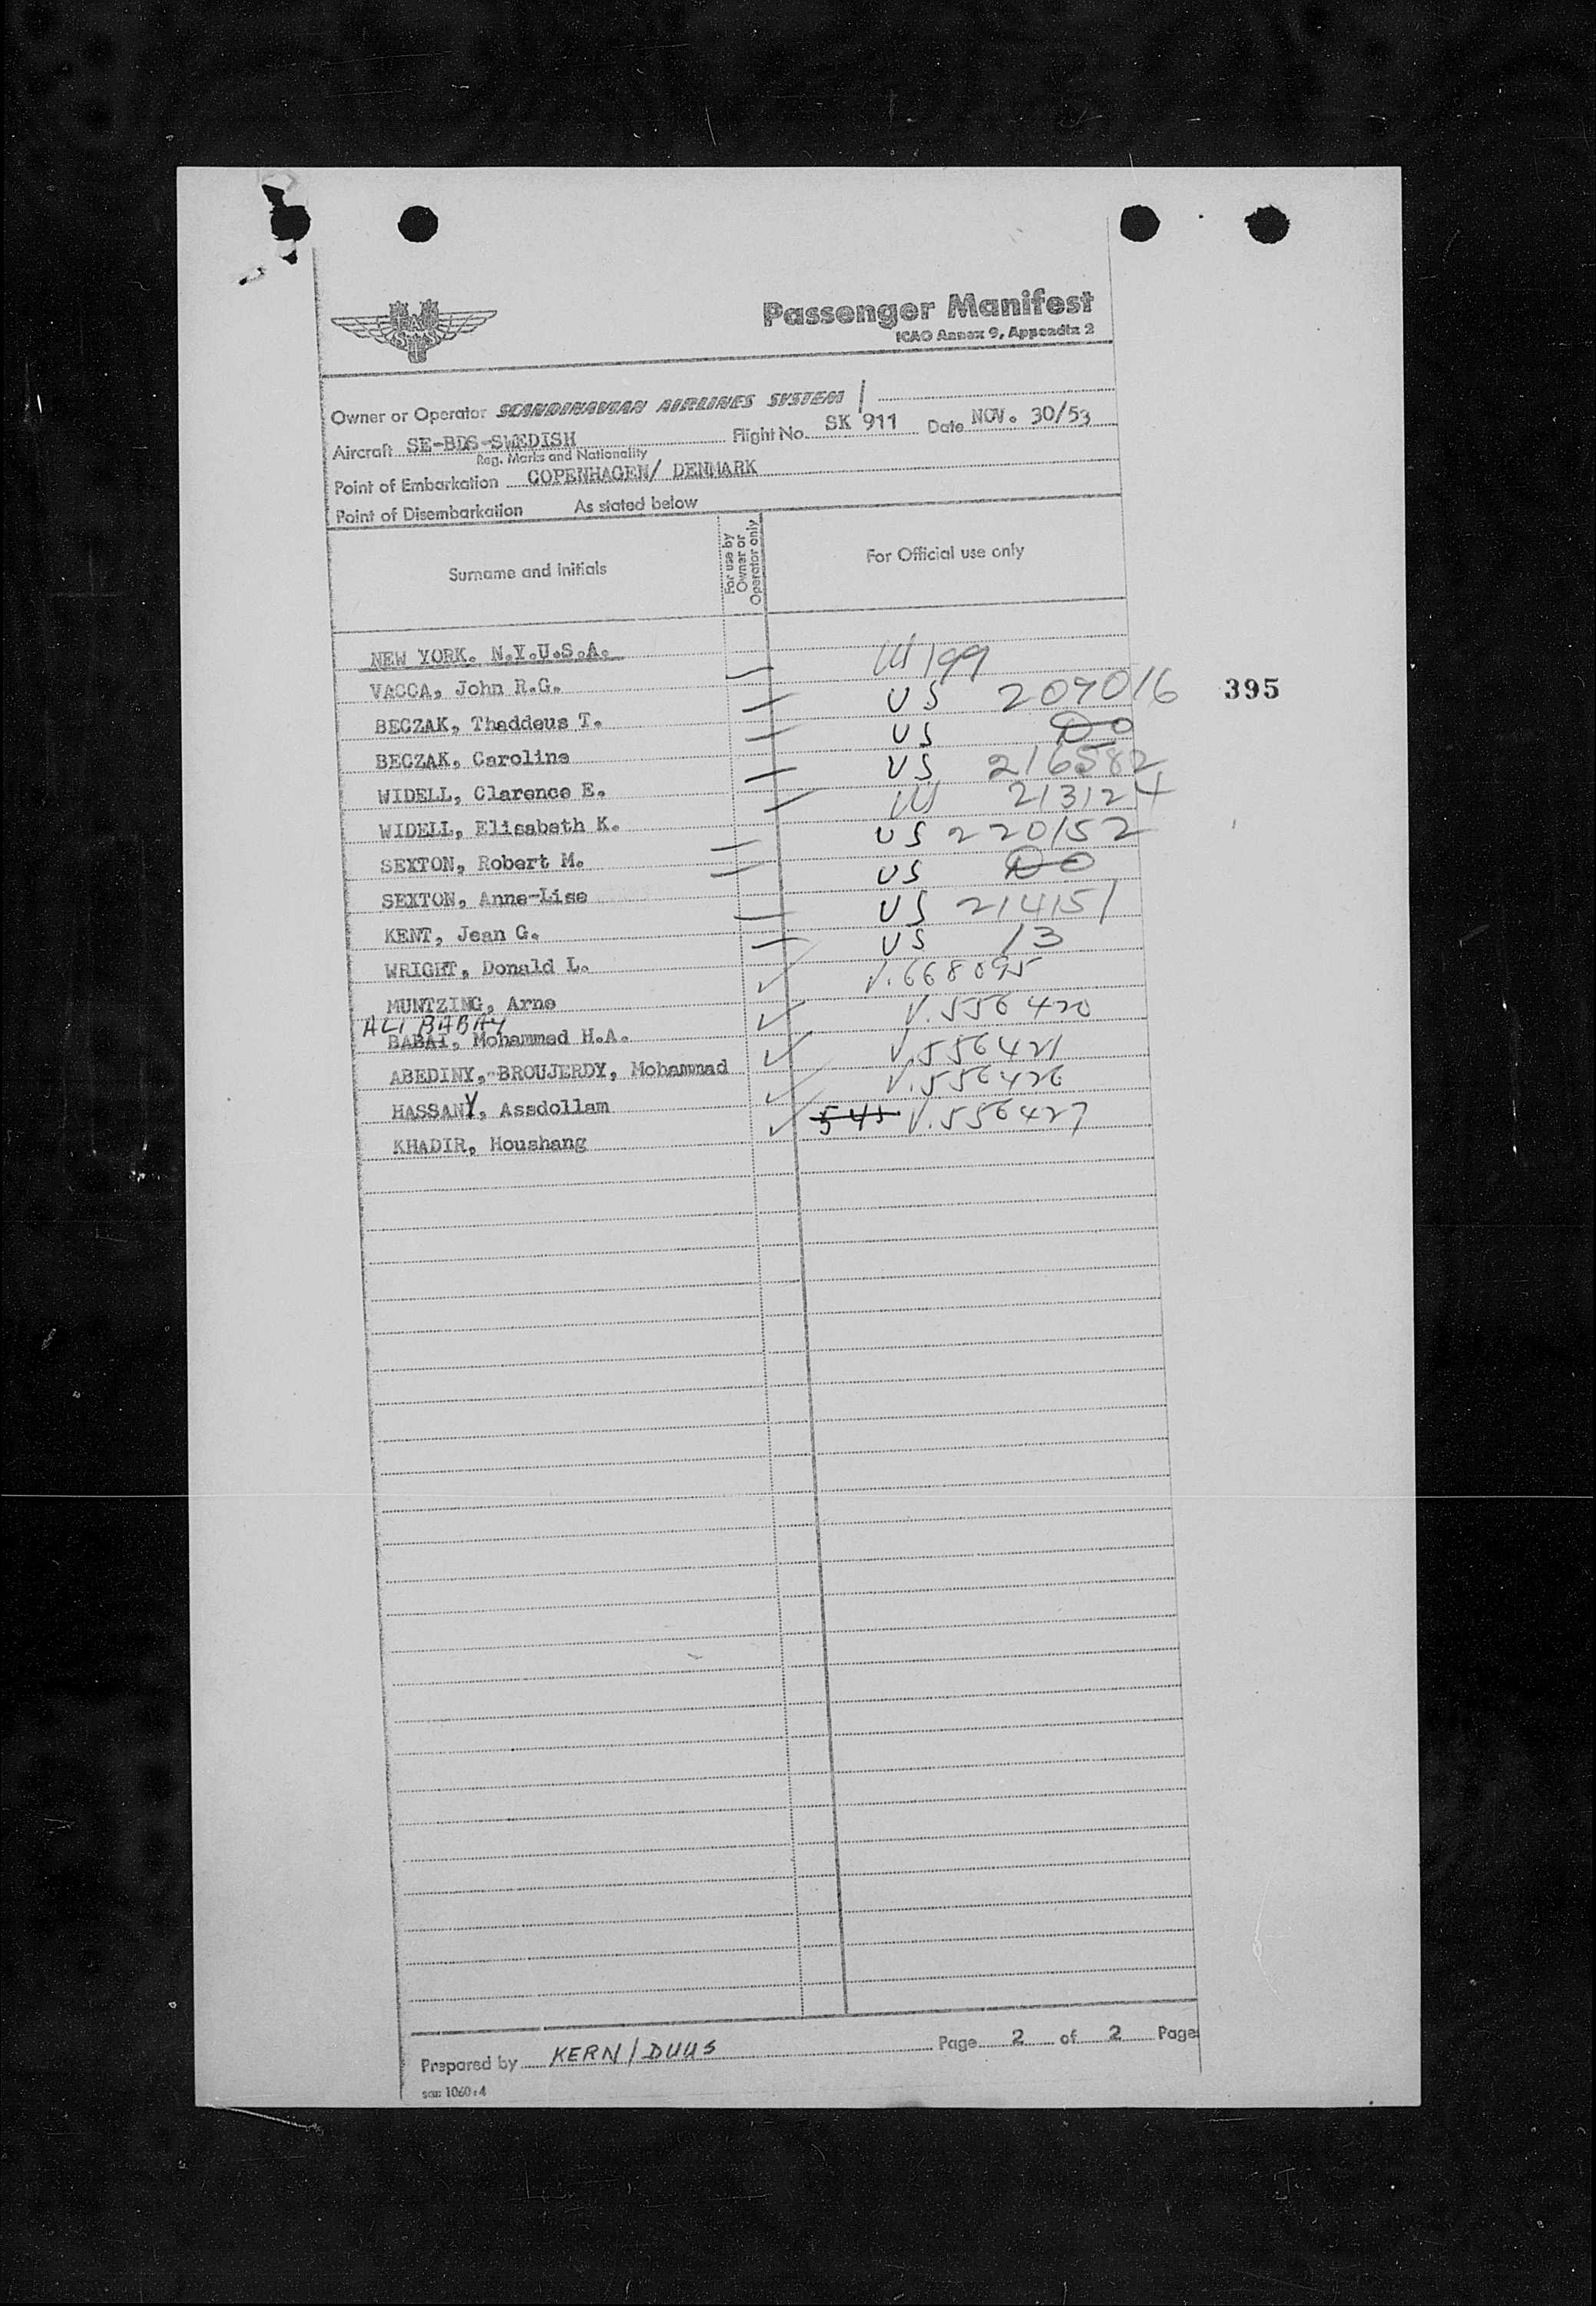 SAS
Passenger Manifest
ICAO Annex 9, Appendix 2
Owner or Operator SCANDINAVIAN AIRLINES SYSTEM
Aircraft SE-BDS-SWEDISH Flight No. SK 911 Date NOV. 30/53
Reg. Marks and Nationality
Point of Embarkation COPENHAGEN/ DENMARK
Point of Disembarkation As stated below
Surname and initials For use by Owner or Operator only For Official use only
NEW YORK. N.Y.U.S.A.
VACCA, John R.G. 199
BECZAK, Thaddeus T. US 209016
395
BECZAK, Caroline US DO
WIDELL, Clarence E. US 216582
WIDELL, Elisabeth K. 213124
SEXTON, Robert M. US 220152
SEXTON, Anne-Lise US DO
KENT, Jean G. US 214151
WRIGHT, Donald L. US 13
MUNTZING, Arne V. 668095
ALI BABAY
BABAI, Mohammed H.A. V. 556420
ABEDINY,-BROUJERDY, Mohammad V. 556421
HASSANY, Assdollam V. 556426
KHADIR, Houshang 545 V. 556427
Prepared by KERN/DUUS Page 2 of 2 Page
1060:4